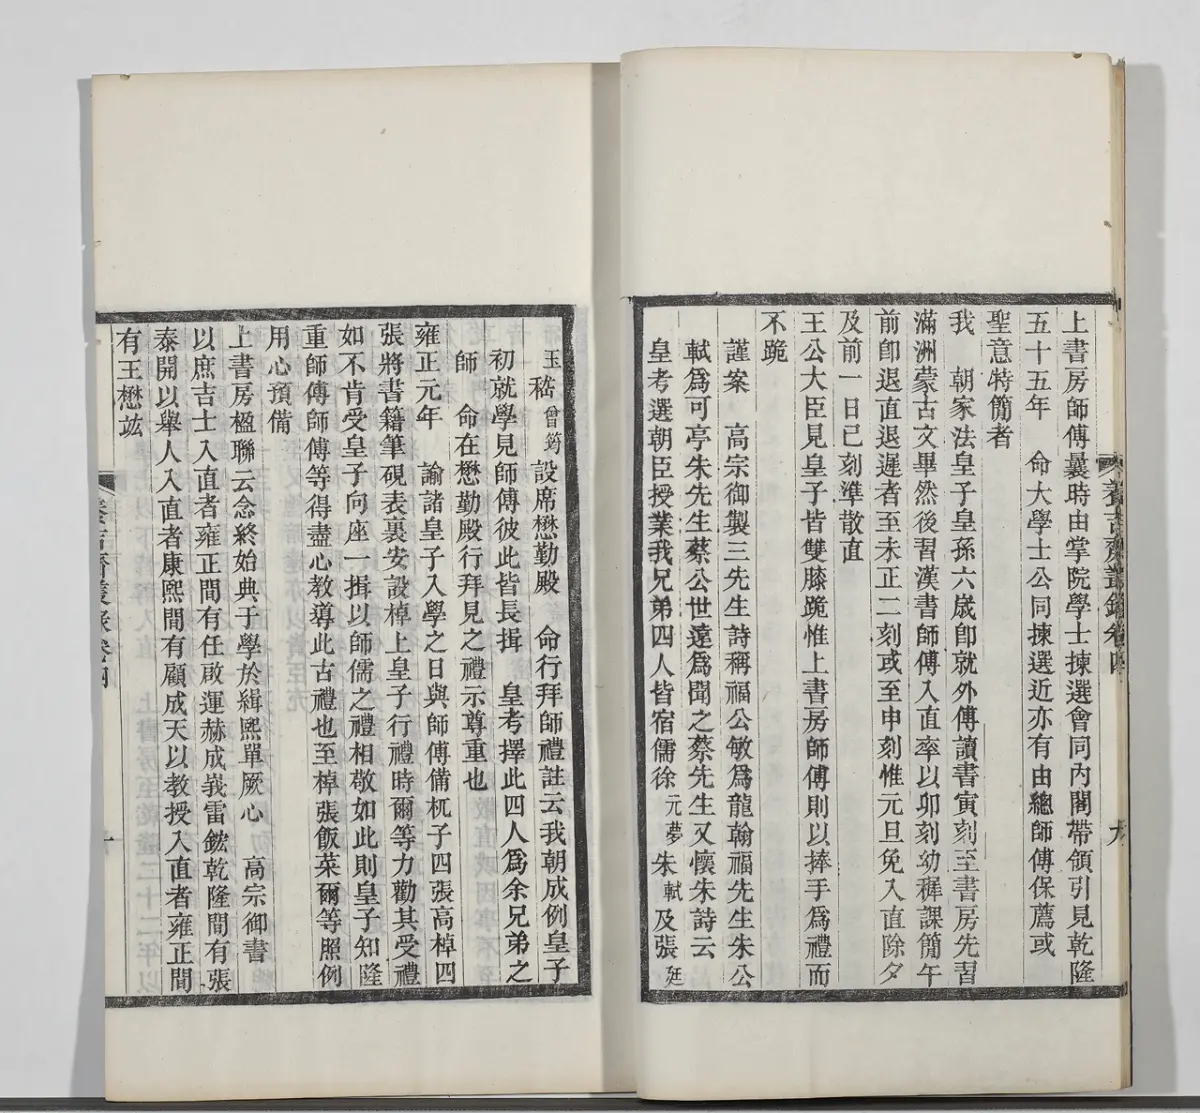 上書房師傅曩時由掌院學士揀選會同內閣帶領引見乾隆
五十五年　命大學士公同揀選近亦有由總師傅保薦或
聖意特簡者
我　朝家法皇子皇孫六歲卽就外傅讀書寅刻至書房先習
滿洲蒙古文畢然後習漢書師傅入直率以卯刻幼穉課簡午
前卽退直退遲者至未正二刻或至申刻惟元旦免入直除夕
及前一日巳刻準散直
王公大臣見皇子皆雙膝跪惟上書房師傅則以捧手爲禮而
不跪
謹案　高宗御製三先生詩稱福公敏爲龍翰福先生朱公
軾爲可亭朱先生蔡公世遠爲聞之蔡先生又懷朱詩云
皇考選朝臣授業我兄弟四人皆宿儒徐元夢朱軾及張廷
養吉齋叢錄卷四　九
玉嵇曾筠設席懋勤殿　命行拜師禮註云我朝成例皇子
初就學見師傅彼此皆長揖　皇考擇此四人爲余兄弟之
師　命在懋勤殿行拜見之禮示尊重也
雍正元年　諭諸皇子入學之日與師傅備杌子四張高棹四
張將書籍筆硯表裏安設棹上皇子行禮時爾等力勸其受禮
如不肯受皇子向座一揖以師儒之禮相敬如此則皇子知隆
重師傅師傅等得盡心教導此古禮也至棹張飯菜爾等照例
用心預備
上書房楹聯云念終始典于學於緝熙單厥心　高宗御書
以庶吉士入直者雍正間有任啟運赫成峩雷鋐乾隆間有張
泰開以舉人入直者康熙間有顧成天以教授入直者雍正間
有王懋竑
養吉齋叢錄卷四　十